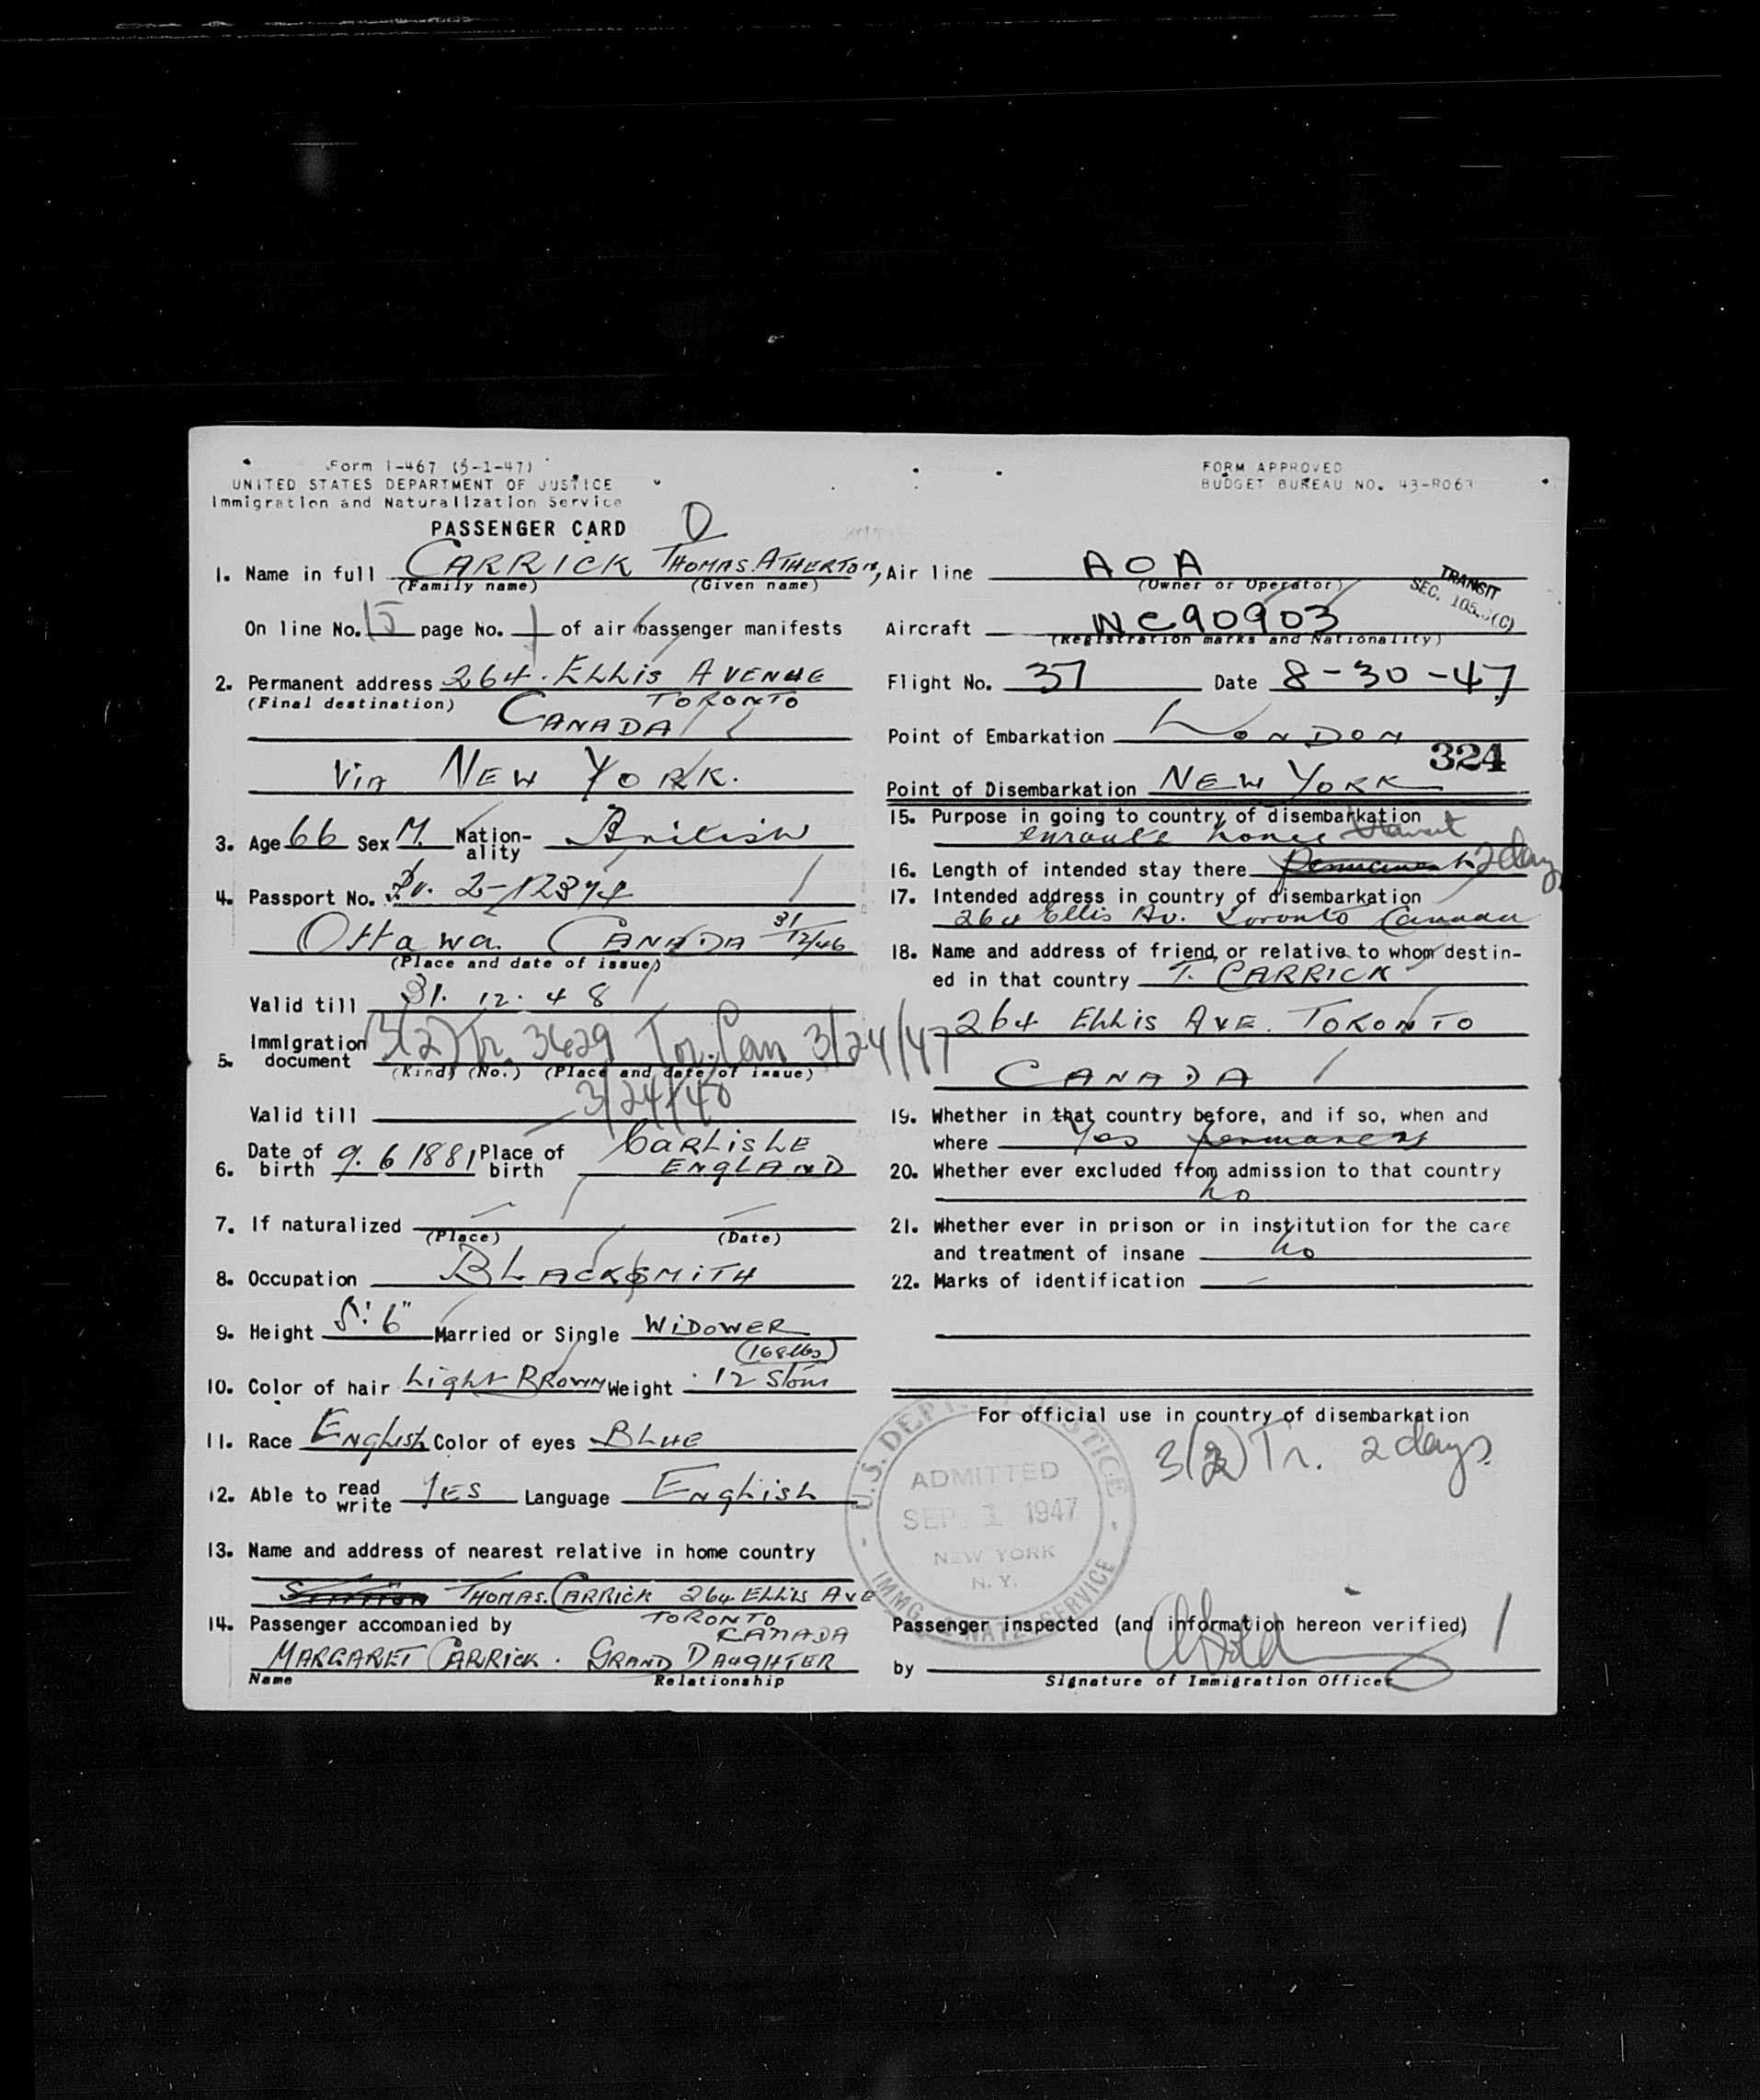 Form I-467 (5-1-47)
UNITED STATES DEPARTMENT OF JUSTICE
Immigration and Naturalization Service
PASSENGER CARD
FORM APPROVED
BUDGET BUREAU NO. 43-R063
1. Name in full CARRICK THOMAS. ATHERTON,
(Family name) (Given name)
On line No. 15 page No. 1 of air passenger manifests
2. Permanent address 264. ELLIS AVENUE
(Final destination) TORONTO
CANADA
Via NEW YORK.
3. Age 66 Sex M. Nation-ality British
4. Passport No. 2-12374
Ottawa. CANADA 31/12/46
(Place and date of issue)
Valid till 31. 12. 48
5. Immigration document 3(2) Tr. 3629 Tor. Can 3/24/47
(Kind) (No.) (Place and date of issue)
Valid till 3/24/48
6. Date of birth 9. 6 1881 Place of birth CARLISLE
ENGLAND
7. If naturalized — —
(Place) (Date)
8. Occupation BLACKSMITH
9. Height 5' 6" Married or Single WIDOWER
(168 lbs)
10. Color of hair Light BROWN Weight 12 Stone
11. Race ENGLISH Color of eyes BLUE
12. Able to read write YES Language ENGLISH
13. Name and address of nearest relative in home country
THOMAS. CARRICK 264 ELLIS AVE
TORONTO
CANADA
14. Passenger accompanied by
MARGARET CARRICK. GRAND DAUGHTER
Name Relationship
Air line AOA
(Owner or Operator)
TRANSIT
SEC. 105. (C)
Aircraft NC90903
(Registration marks and Nationality)
Flight No. 37 Date 8-30-47
Point of Embarkation LONDON
324
Point of Disembarkation NEW YORK
15. Purpose in going to country of disembarkation
enroute home transit
16. Length of intended stay there permanent 2 days
17. Intended address in country of disembarkation
264 Ellis Av. Toronto Canada
18. Name and address of friend or relative to whom destin-
ed in that country T. CARRICK
264 ELLIS AVE. TORONTO
CANADA
19. Whether in that country before, and if so, when and
where Yes permanent
20. Whether ever excluded from admission to that country
no
21. Whether ever in prison or in institution for the care
and treatment of insane no
22. Marks of identification —
For official use in country of disembarkation
3(2) Tr. 2 days.
U.S. DEPT. OF JUSTICE
ADMITTED
SEP 1 1947
NEW YORK
N. Y.
IMMG. & NATZ. SERVICE
Passenger inspected (and information hereon verified)
by
Signature of Immigration Officer